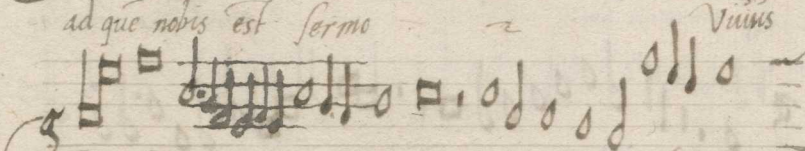 ad quē nobis est sermo Viuus